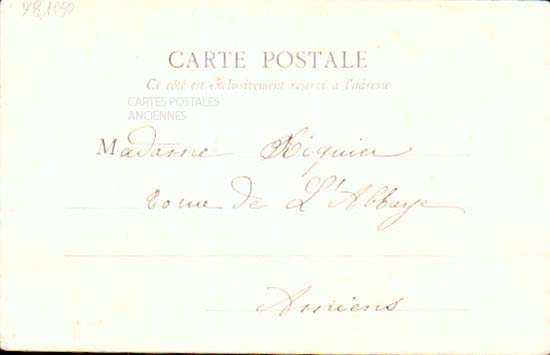 CARTE POSTALE
Ce côté est exclusivement réservé à l'adresse
CARTES POSTALES
ANCIENNES
Madame Riquier
de L'Abbaye
Amiens